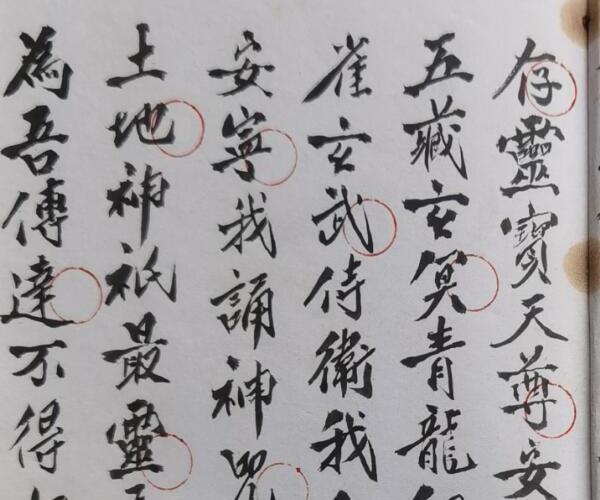 存靈寳天尊安
五藏玄冥青龍
雀玄武侍衛我
安寧我誦神咒
土地神祇最靈
為吾傳達不得